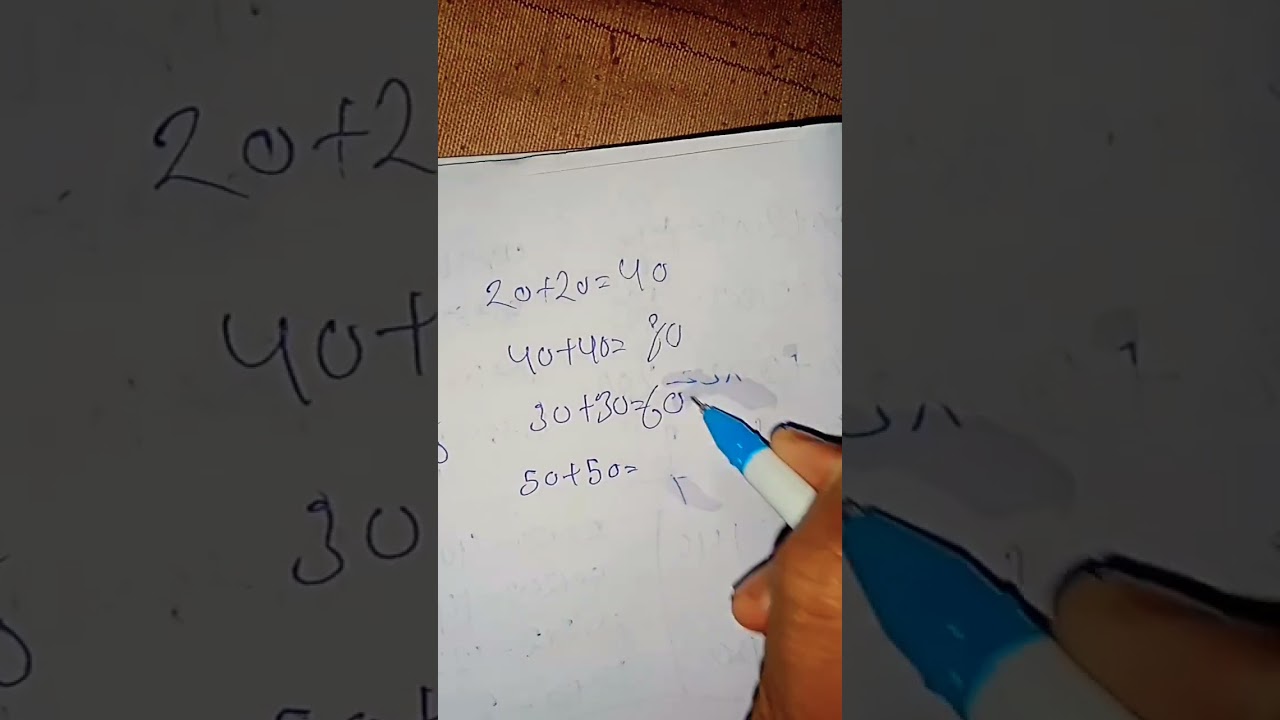 20+20=40
40+40=80
30+30=60
50+50=